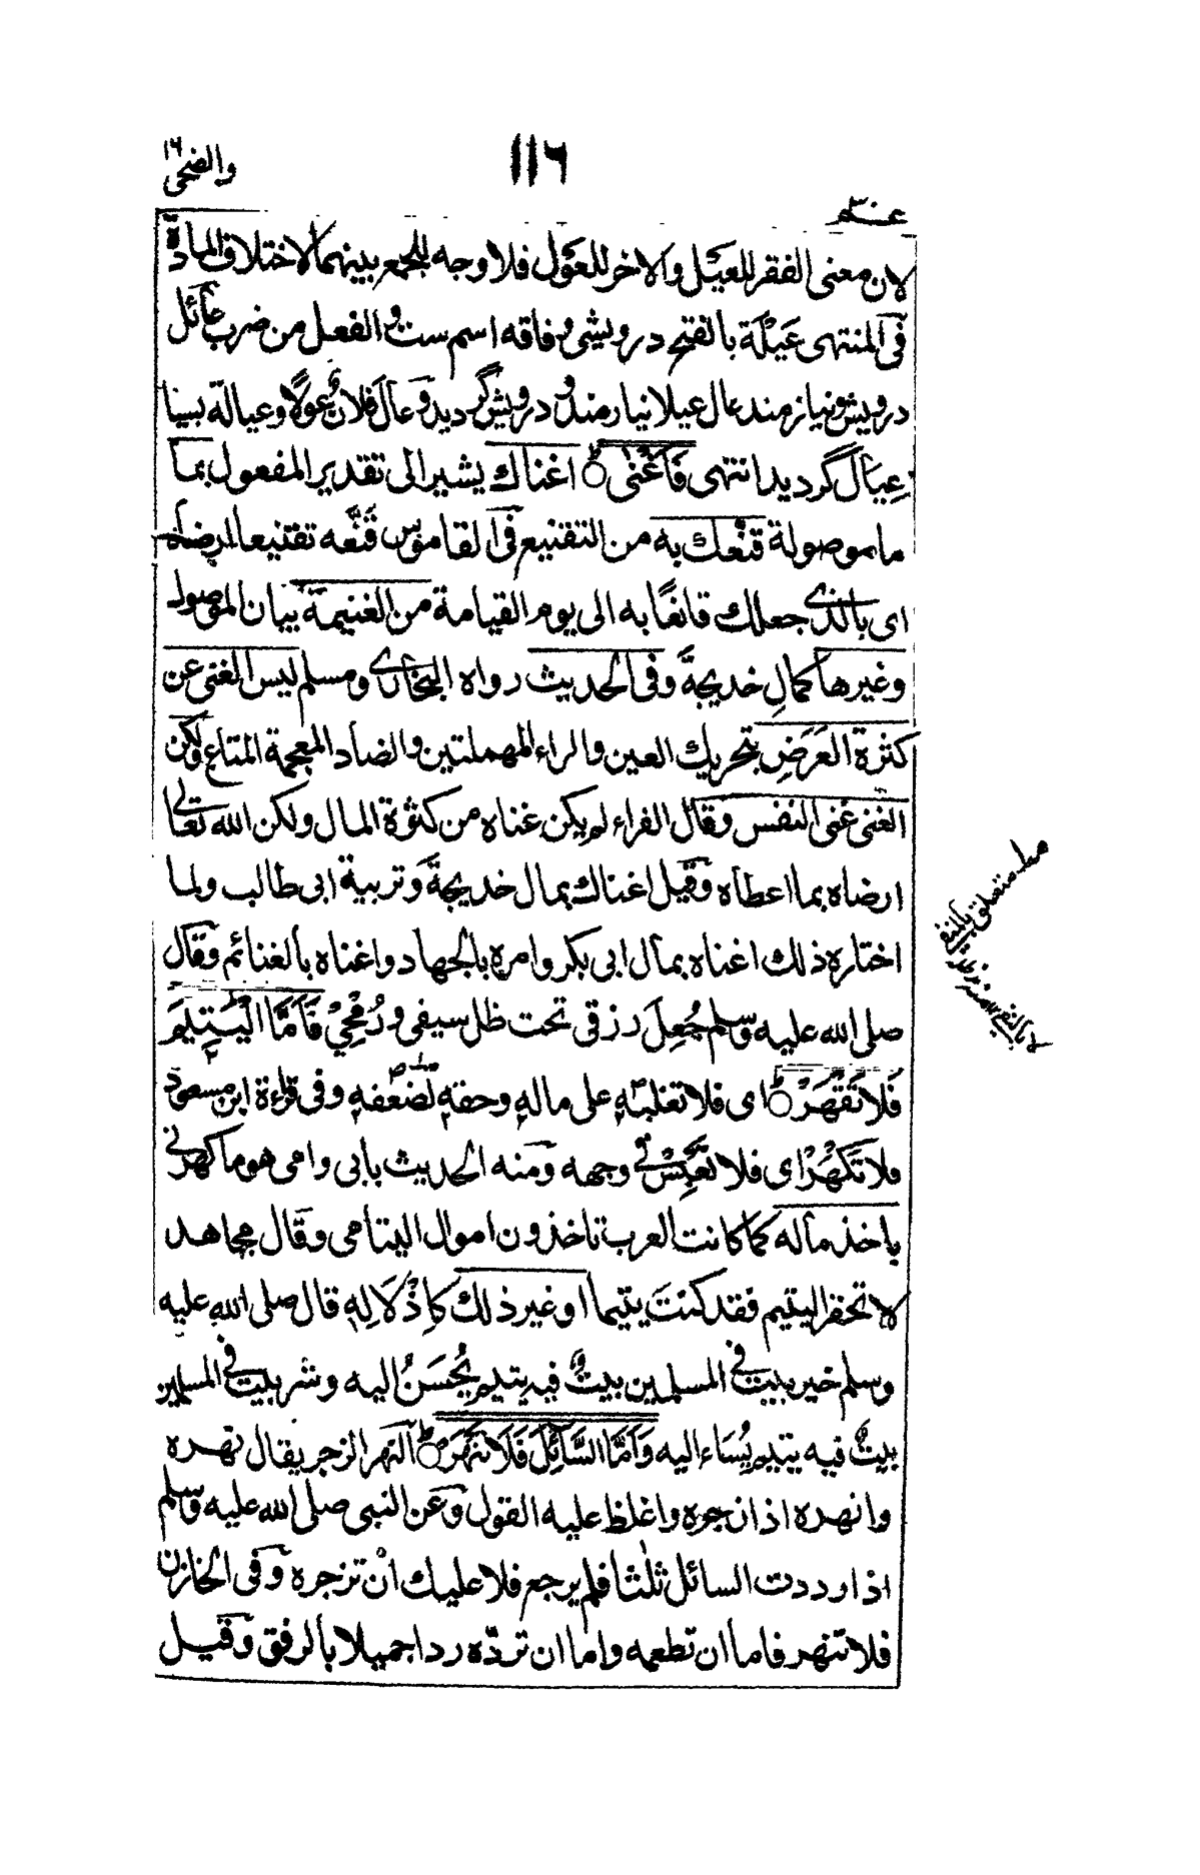 والضحى
١١٦
عم
لان معنى الفقر للعيل والاخر للعول فلا وجه للجمع بينهما لاختلاف المادة
فى المنتهى عَيْلَة بالفتح درويشى وفاقه اسم ست والفعل من ضرب عائل
درويش ونيازمند عال عيلا نيازمند و درويش گرديد و عال فلانٌ عولًا وعيالة بسيار
عِيال گرديد انتهى فَاَغْنٰى اغناك يشير الى تقدير المفعول بما
ما موصولة قنّعك به من التقنيع فى القاموس قَنَّعه تقنيعا ارضاه
اى بالذى جعلك قانعًا به الى يوم القيامة من الغنيمة بيان الموصول
وغيرها كمالِ خديجةَ وفى الحديث رواه البخارى ومسلم ليس الغنى عن
كثرة العَرَضِ بتحريك العين والراء المهملتين والضاد المعجمة المتاع ولكن
الغنى غنى النفس وقال الفراء لم يكن غناه من كثرة المال ولكن الله تعالى
ارضاه بما اعطاه وقيل اغناك بمال خديجةَ وتربية ابى طالب ولما
اختاره ذلك اغناه بمال ابى بكر وامره بالجهاد واغناه بالغنائم وقال
صلى الله عليه وسلم جُعِلَ رزقى تحت ظل سيفى ورُمْحِيْ فَاَمَّا الْيَتِيْمَ
فَلَا تَقْهَرْ اى فلا تغلبه على ماله وحقه لضعفه وفى قراءة ابن مسعود
فلا تَكْهَرْ اى فلا تعبّس فى وجهه ومنه الحديث بابى وامى هو ما كهرنى
ياخذ ماله كما كانت العرب تاخذون اموال اليتامى وقال مجاهد
لا تحقر اليتيم فقد كنتَ يتيما او غير ذلك كَاِذْلَالِهٖ قال صلى الله عليه
وسلم خير بيت فى المسلمين بيتٌ فيه يتيم يُحْسَنُ اليه وشر بيت فى المسلمين
بيتٌ فيه يتيم يُسَاء اليه وَاَمَّا السَّآئِلَ فَلَا تَنْهَرْ النهر الزجر يقال نهره
وانهره اذا زجره واغلظ عليه القول وعن النبى صلى الله عليه وسلم
اذا رددت السائل ثلٰثا فلم يرجع فلا عليك انْ تزجره وفى الخازن
فلا تنهر فاما ان تطعمه واما ان تردّه ردا جميلا بالرفق وقيل